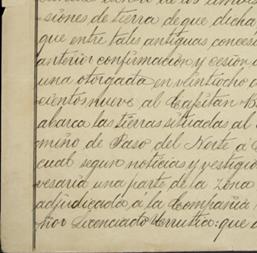 siones de tierra de que dicha
que entre tales antiguas conces
anterior confirmacion y cesión a
una otorgada en veintiocho d
cientos nueve al Capitan B
abarca las tierras situadas al
mino de Paso del Norte a C
cual segun noticias y vestigio
vesaria una parte de la Zona
adjudicada a la Compañia
ñor Licenciado Urrutia: que a